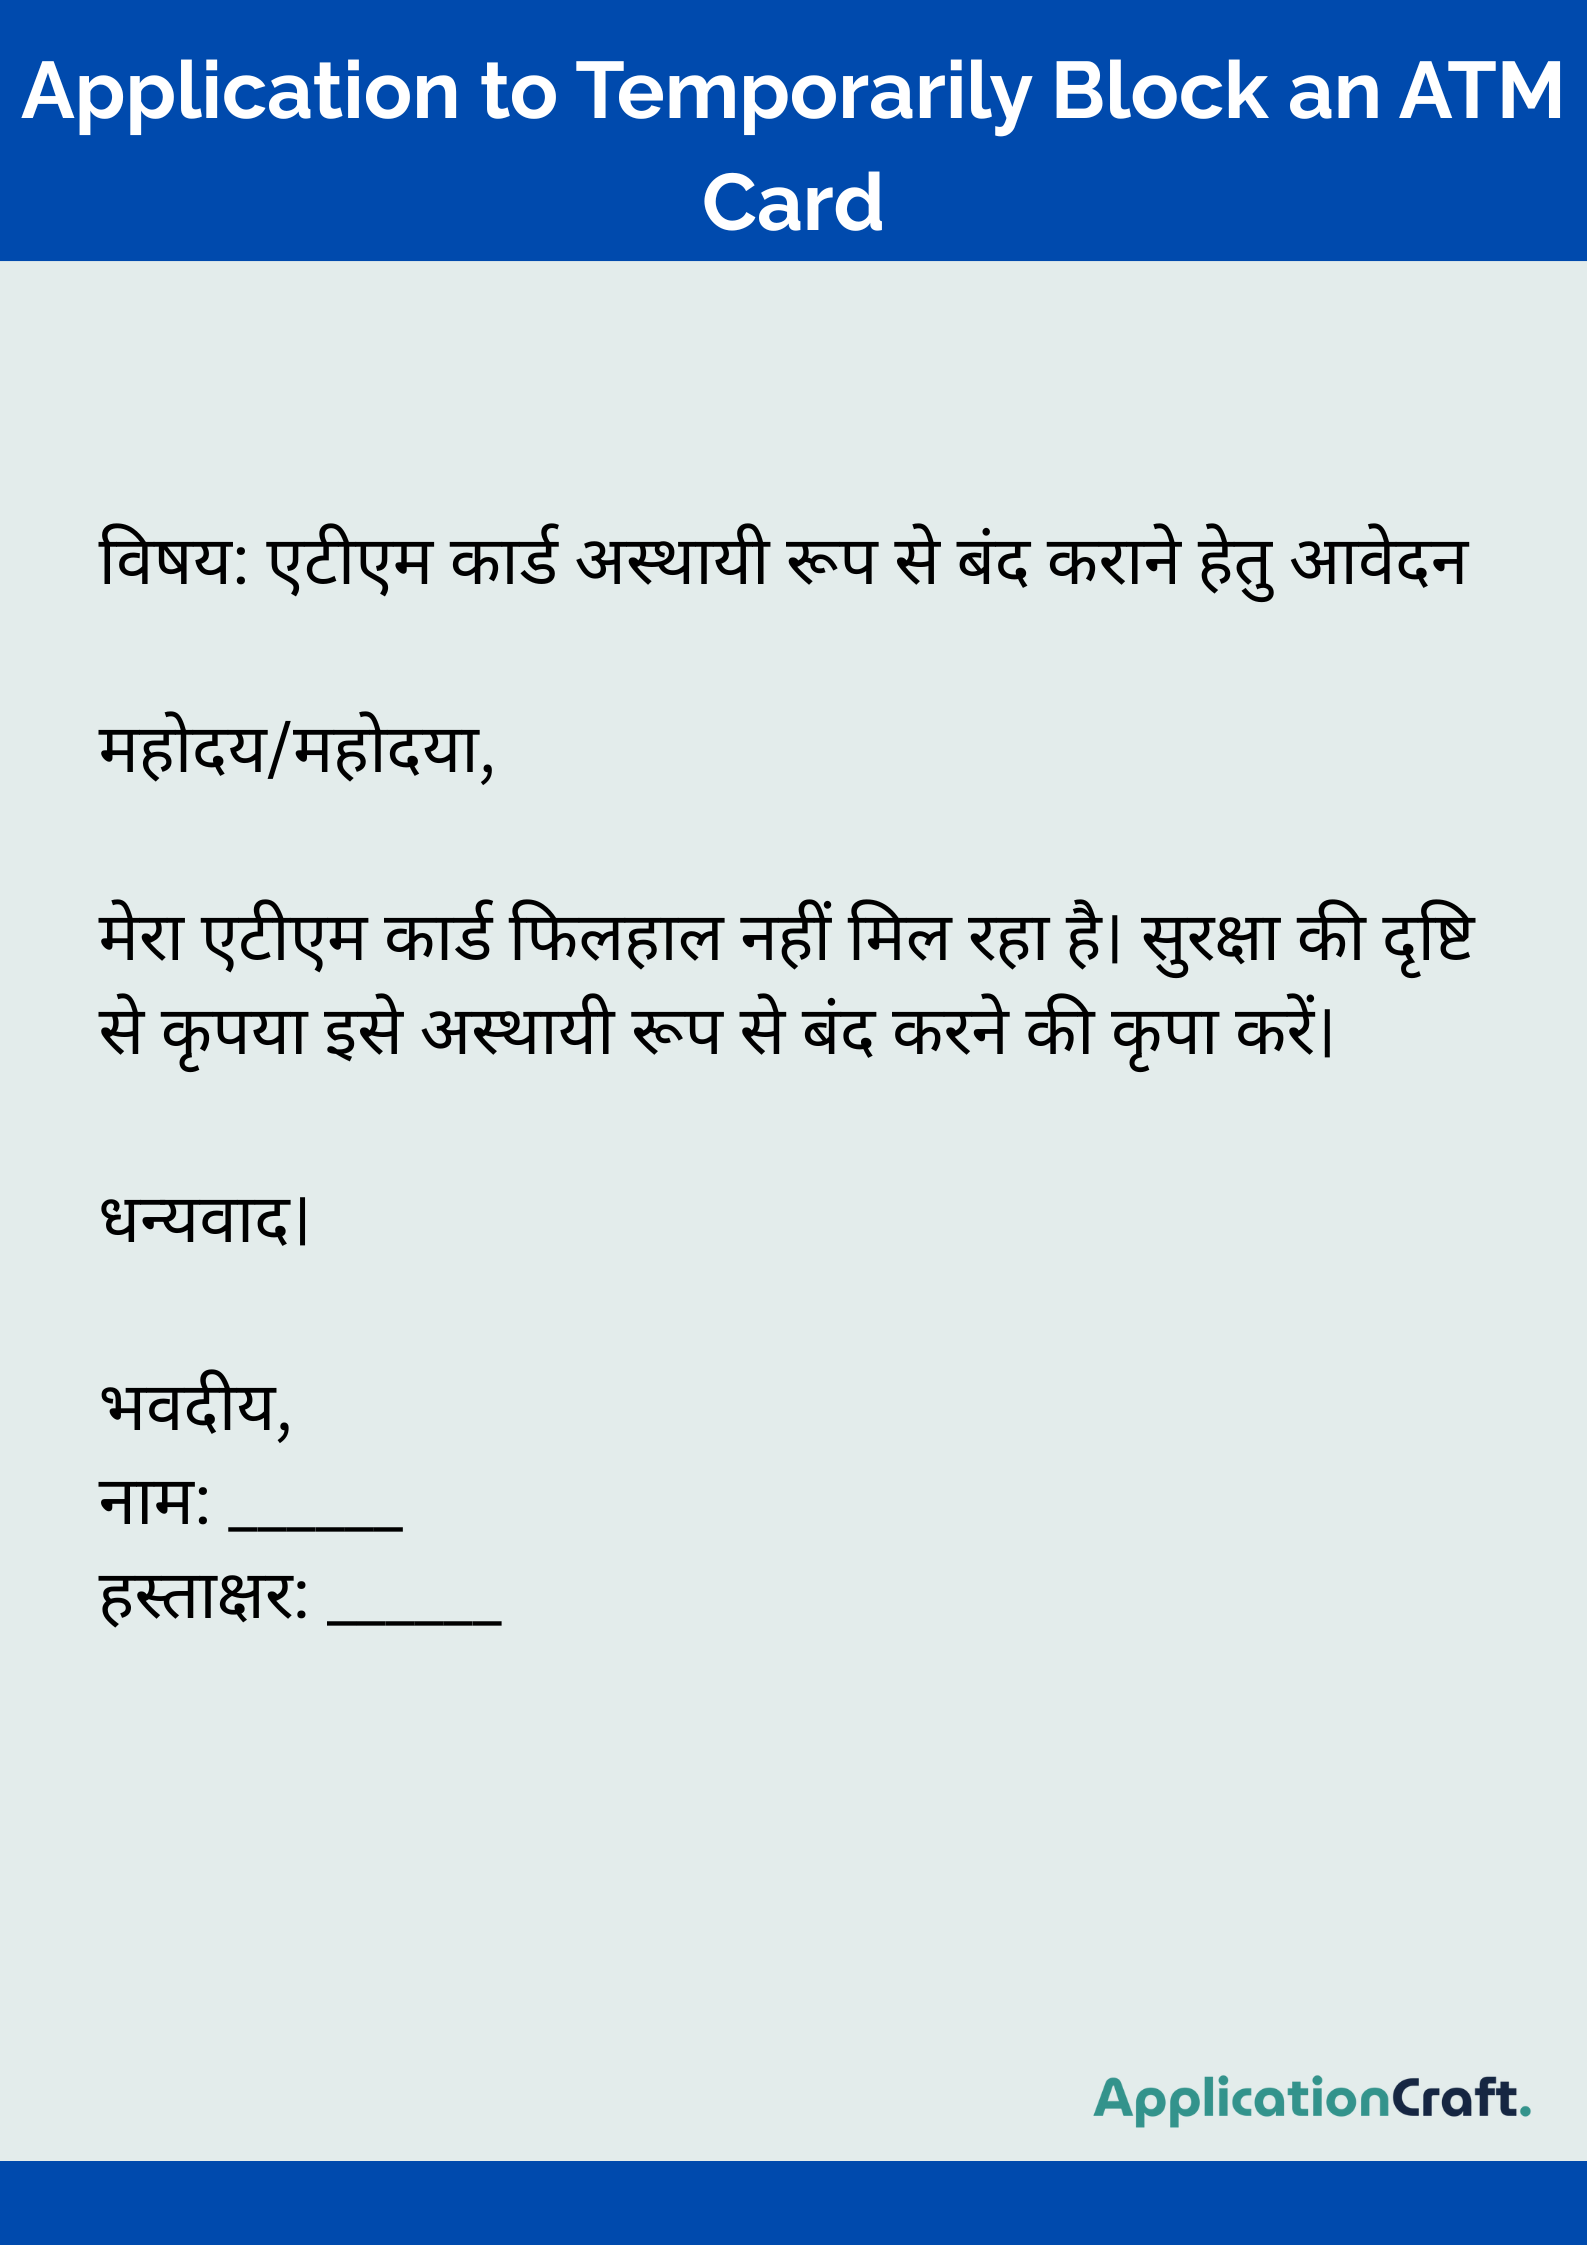 Application to Temporarily Block an ATM
Card
विषय: एटीएम कार्ड अस्थायी रूप से बंद कराने हेतु आवेदन
महोदय/महोदया,
मेरा एटीएम कार्ड फिलहाल नहीं मिल रहा है। सुरक्षा की दृष्टि
से कृपया इसे अस्थायी रूप से बंद करने की कृपा करें।
धन्यवाद।
भवदीय,
नाम: ______
हस्ताक्षर: ______
ApplicationCraft.